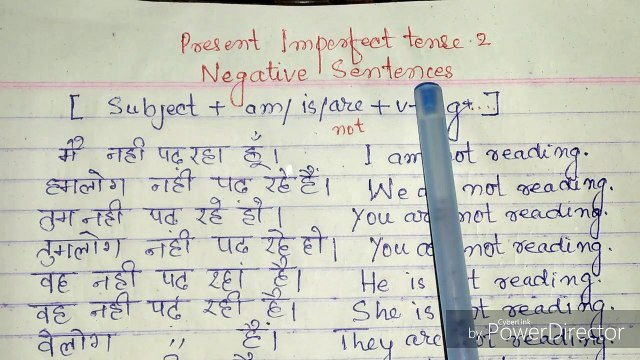 Present Imperfect tense. 2
Negative Sentences
[ Subject + am/is/are + v+ g+...]
not
मैं नही पढ़ रहा हूँ। I am not reading.
हमलोग नहीं पढ़ रहे हैं। We not reading.
तुम नही पढ़ रहे हो। You are not reading.
तुमलोग नहीं पढ़ रहे हो। You not reading.
वह नही पढ़ रहा है। He is reading.
वह नही पढ़ रही है। She is not reading.
वेलोग " हैं। They are not reading.
CyberLink
by PowerDirector